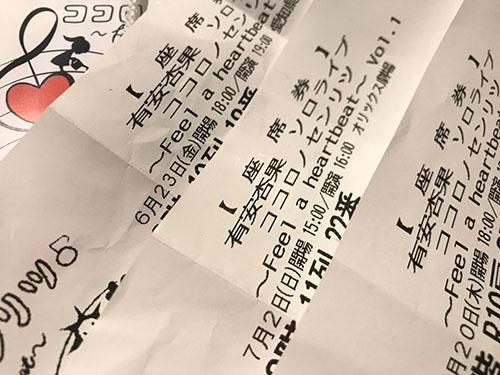 ココロ
【座席券
有安杏果 ソロライブ
ココロノセンリツ
～Feel a heartbeat～
6月23日(金)開場 18:00/開演 19:00
10列 10番
【座席券】
有安杏果 ソロライブ
ココロノセンリツ
～Feel a heartbeat～ Vol.1
7月2日(日)開場 15:00/開演 16:00 オリックス劇場
11列 22番
【座席券
有安杏果 ソロライブ
ココロノセンリツ
～Feel a heartbeat～
月20日(木)開場 18:00/開演